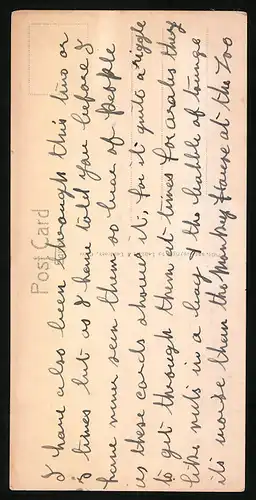 Post Card
I have also been through this two or
3 times but as I have told you before I
have never seen them so luce of people
as these cards shows it, for it quite a riggle
to get through them at times for orates they
like nuts in a bag & the battle of tounge
its worse than the Monkey House at the Zoo